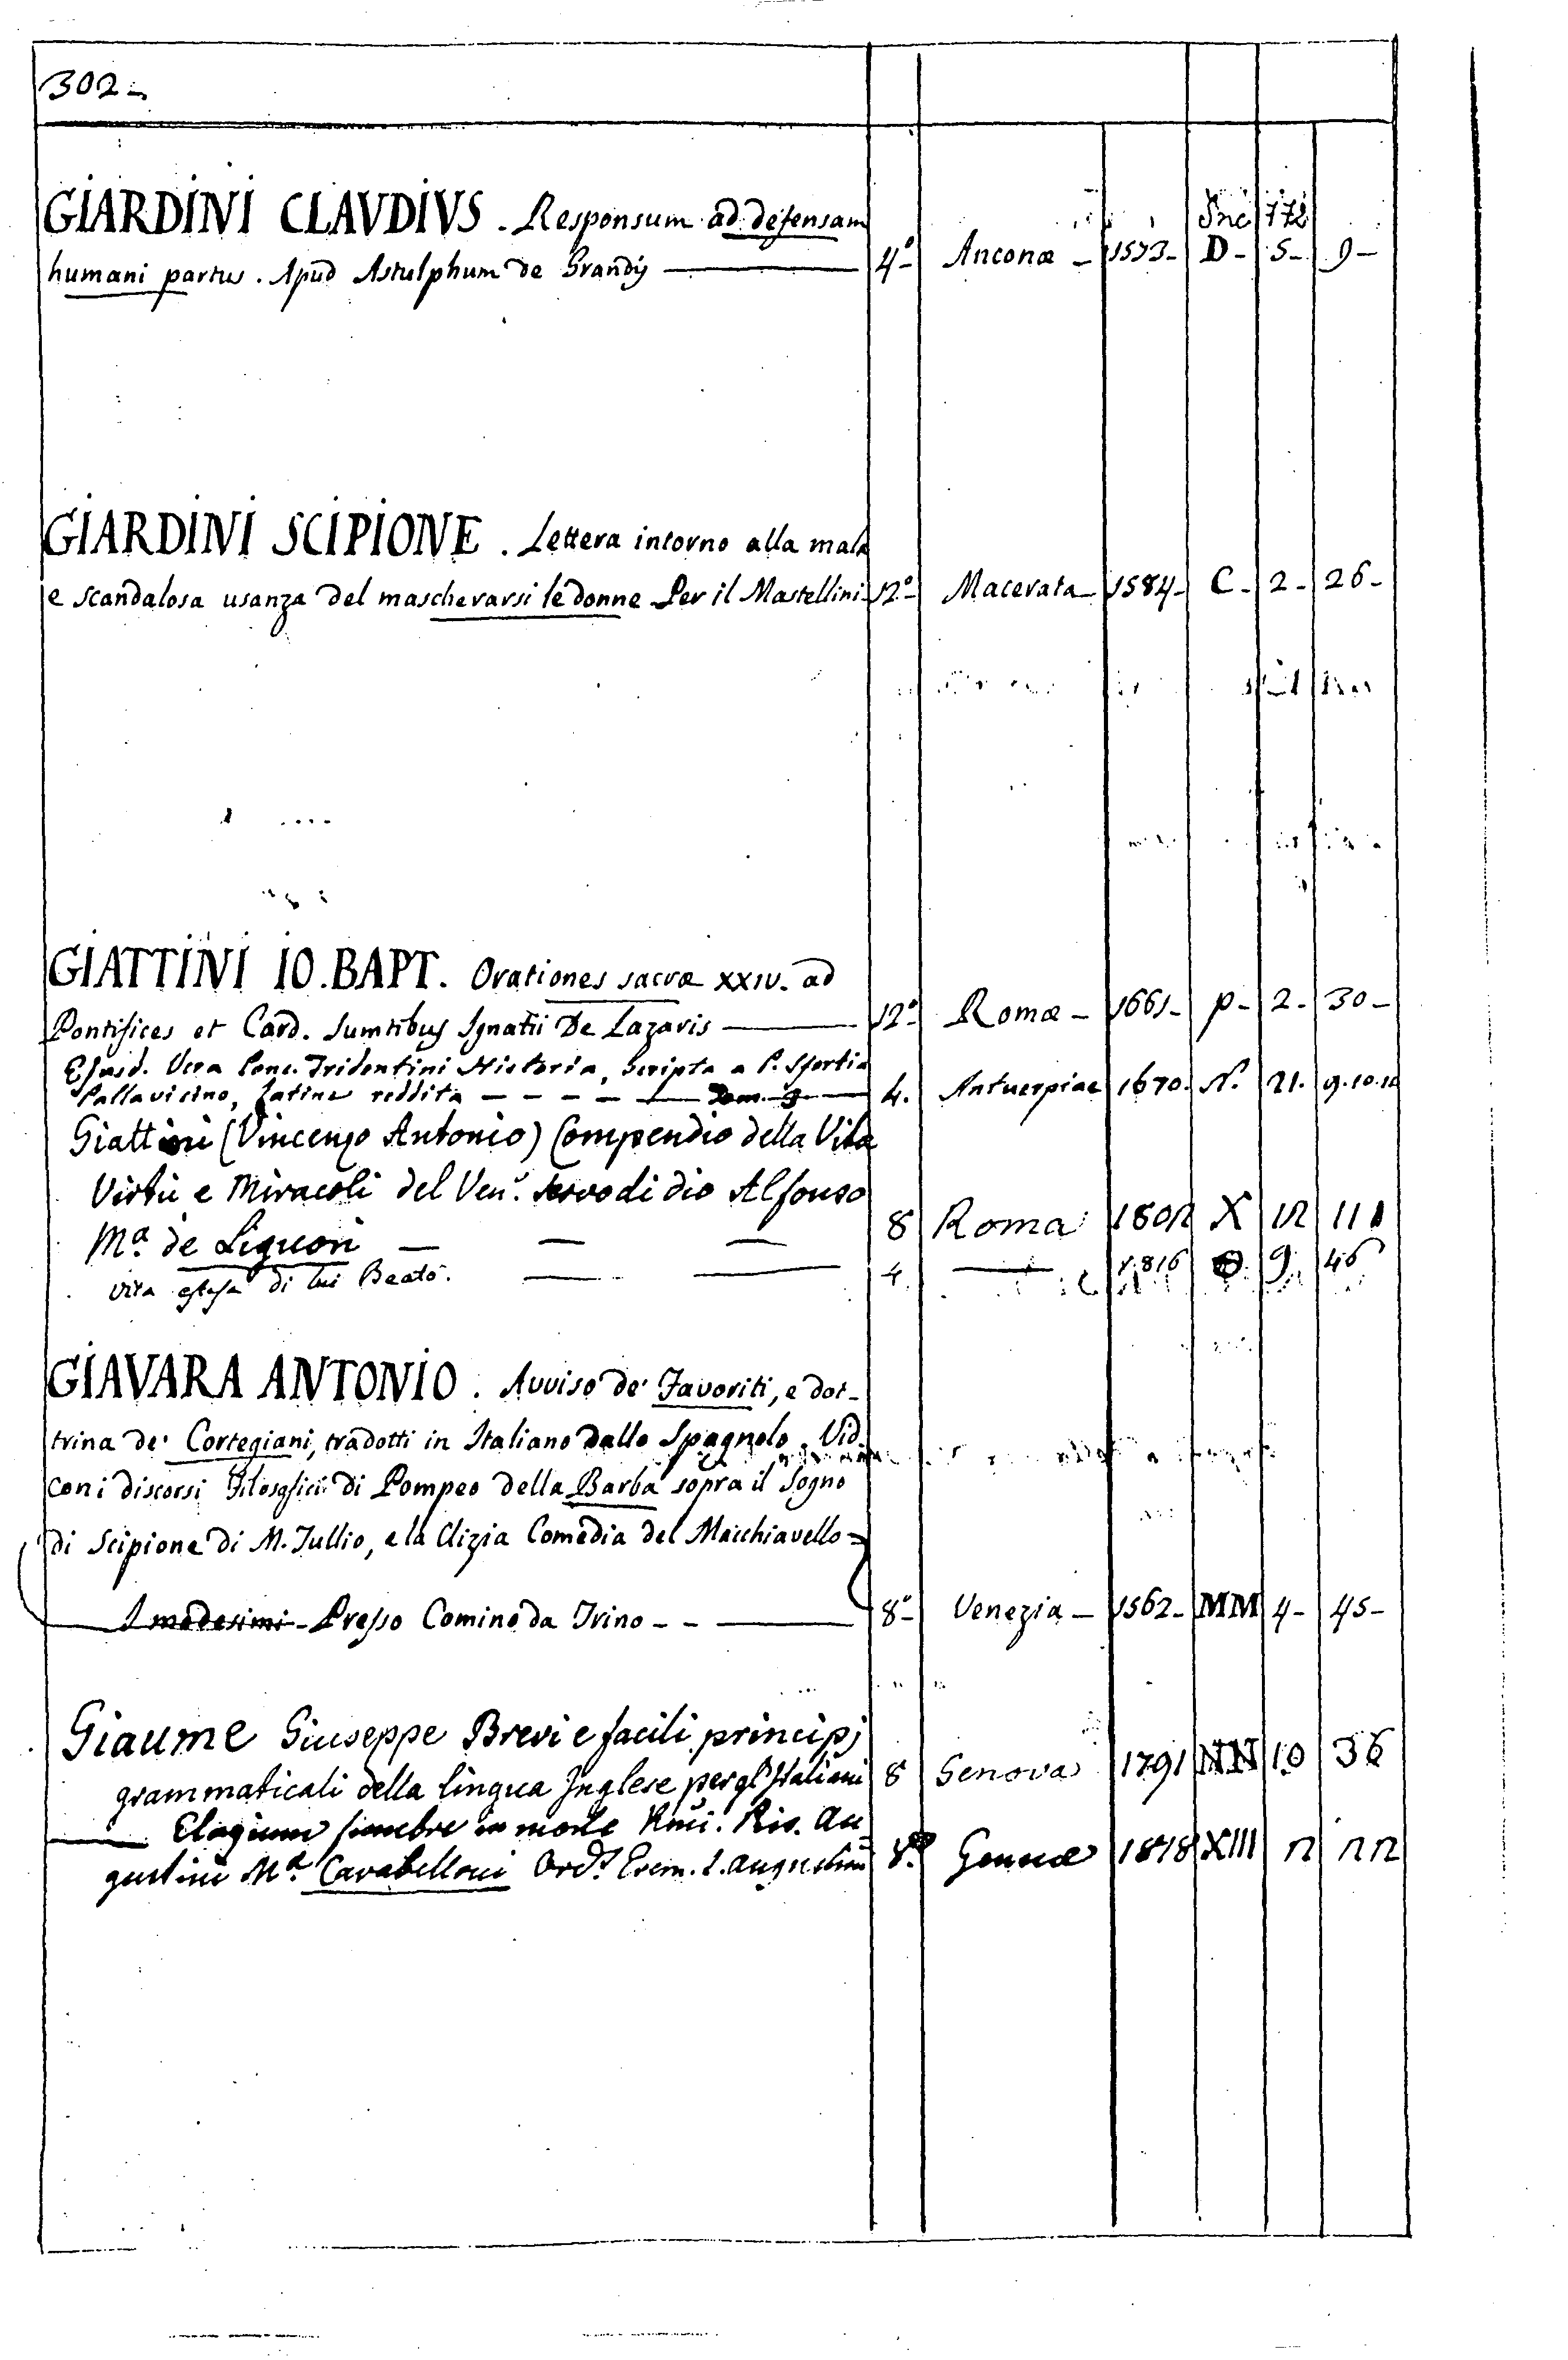 302-
Inc 772
GIARDINI CLAVDIVS. Responsum ad defensam
humani partus. Apud Astulphum de Grandij 4° Anconæ - 1573- D- 5- 9-
GIARDINI SCIPIONE. Lettera intorno alla mala
e scandalosa usanza del mascherarsi le donne Per il Mastellini- 12°- Macerata- 1584- C- 2- 26-
GIATTINI IO. BAPT. Orationes sacræ XXIV. ad
Pontifices et Card. Sumtibus Ignatii De Lazaris 12°- Romæ - 1661- P- 2- 30-
Ejusd. Vera Conc. Tridentini Historia, Scripta a P. Sfortia
Pallavicino, Latine reddita - - - - Tom. 3 4. Antuerpiae 1670. N. 21. 9.10.11
Giattini (Vincenzo Antonio) Compendio della Vita
Virtù e Miracoli del Ven. servo di dio Alfonso
M.a de Liguori — — — 8 Roma 1802 X 12 111
vita estesa di lui Beato. — — 4. — 1816 9. 46
GIAVARA ANTONIO. Avviso de' Favoriti, e dot-
trina de' Cortegiani, tradotti in Italiano dallo Spagnolo. Vid.
con i discorsi Filosofici di Pompeo della Barba sopra il Sogno
di Scipione di M. Tullio, e la Clizia Comedia del Macchiavello-
I medesimi- Presso Comino da Trino - - 8°- Venezia - 1562- MM 4- 45-
Giaume Giuseppe Brevi e facili principj
grammaticali della lingua Inglese per gl'Italiani 8 Genova 1791 NN 10 36
— Elogium funebre in morte Rmi. Au
gustini M.a Carabelloni Ord.s Erem. S. Augustini 8.° Genuæ 1818 XIII 2 22